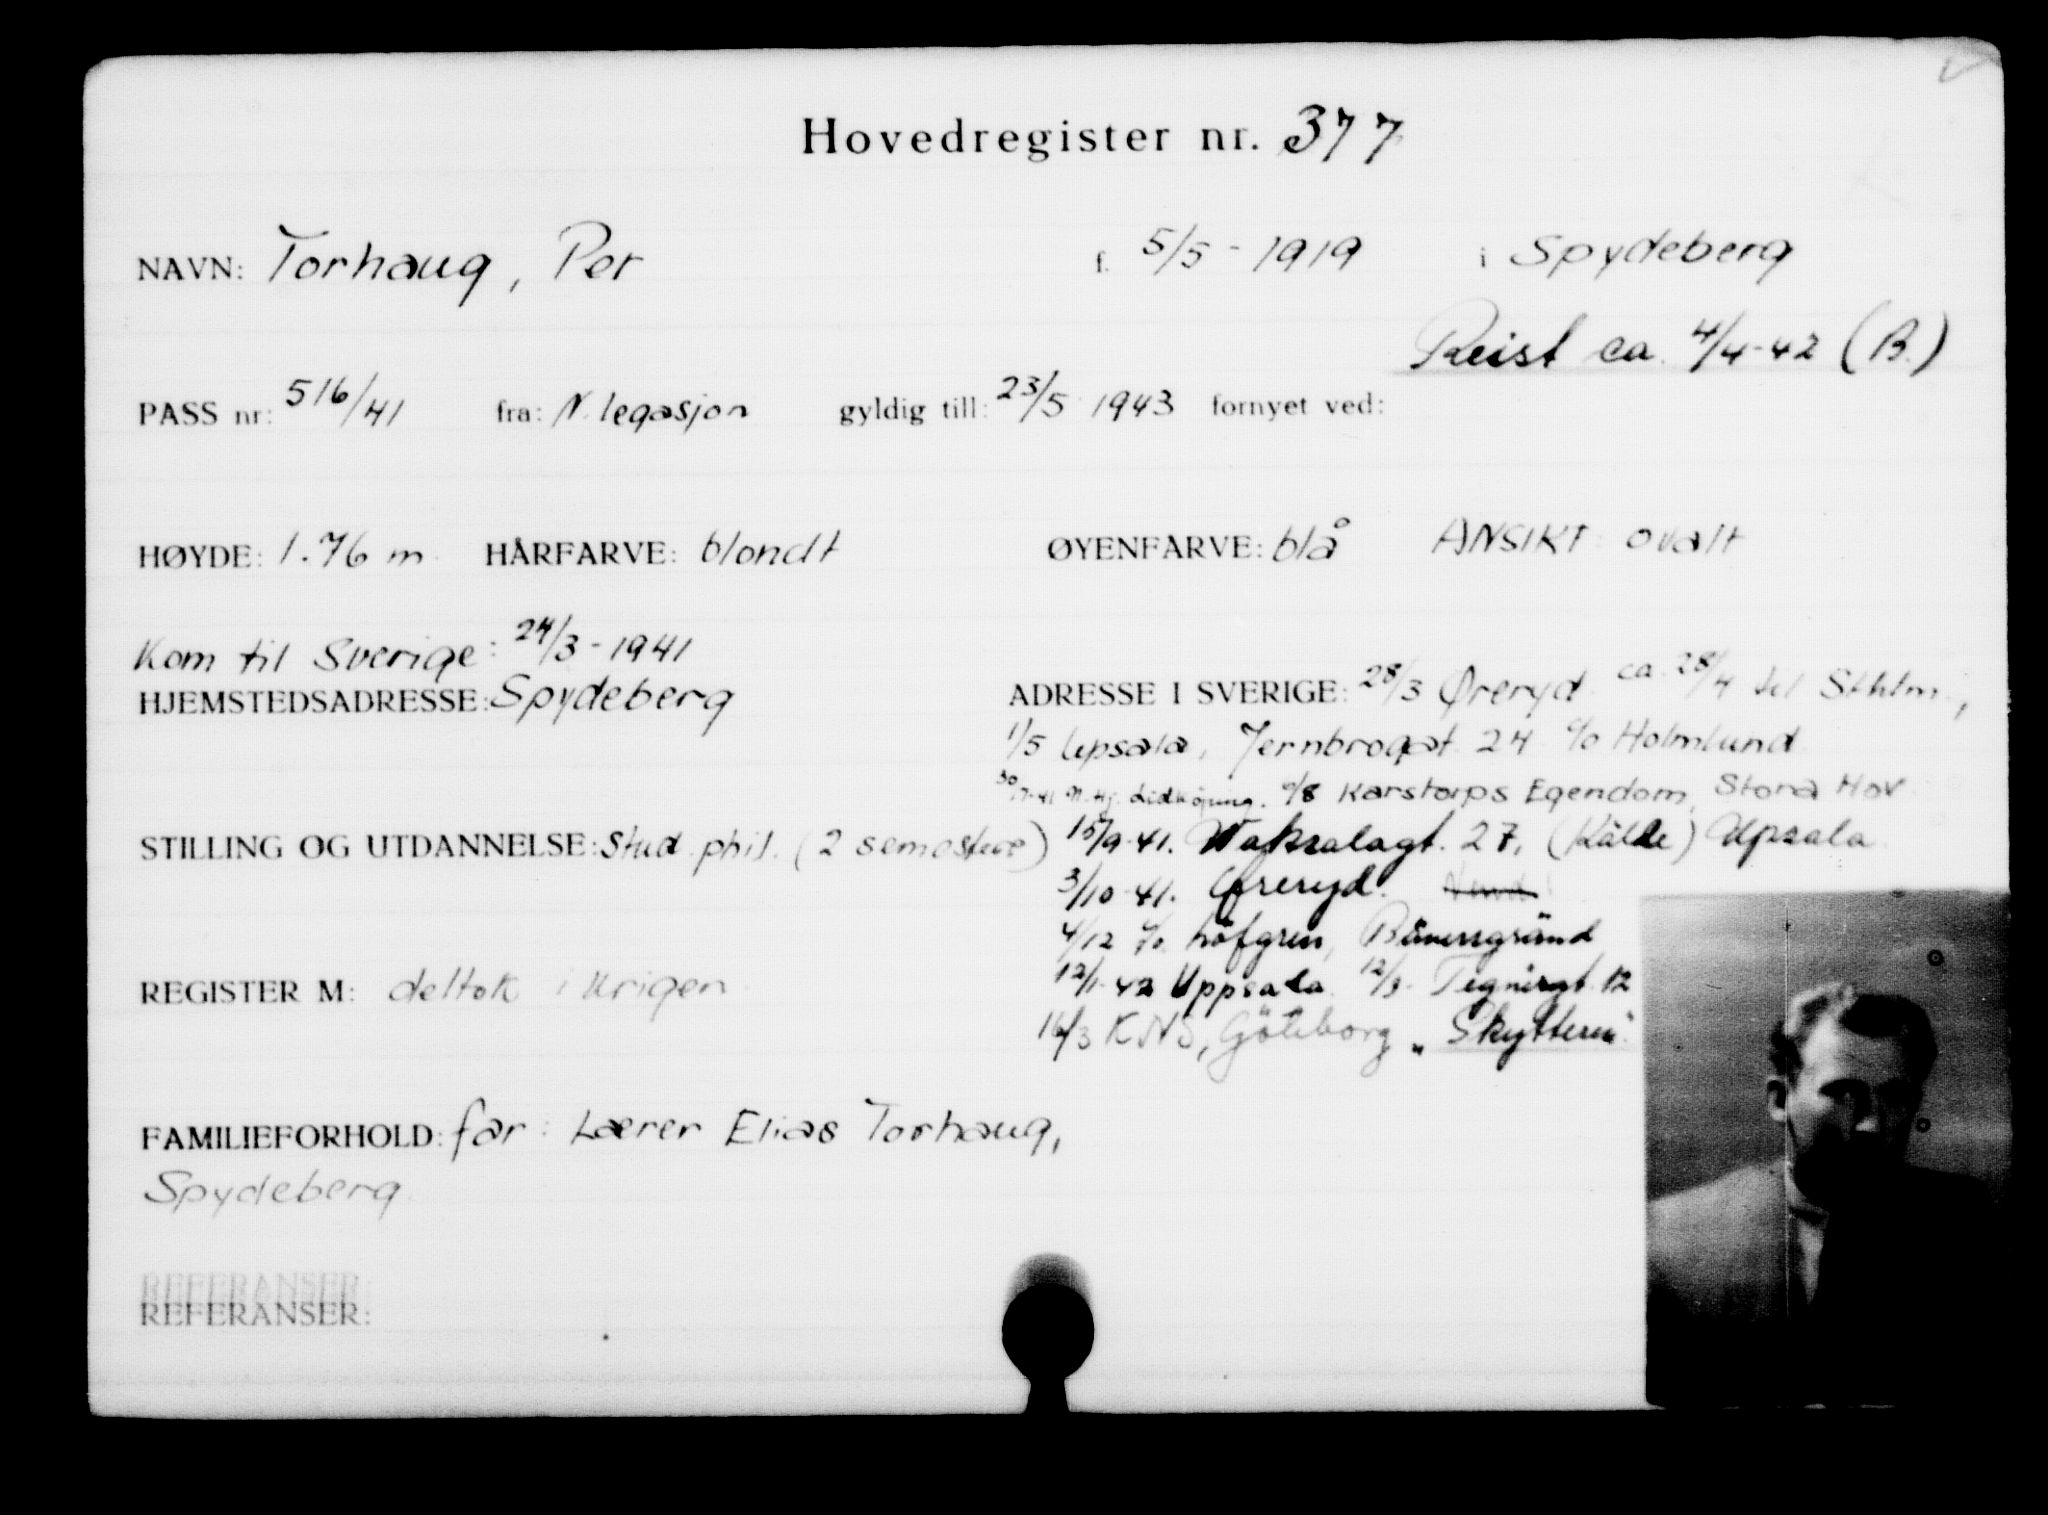 Hovedregister nr. 377
NAVN: Torhaug, Per f. 5/5 - 1919 i Spydeberg
Reist ca. 4/4-42 (B.)
PASS nr: 516/41 fra: N. legasjon gyldig till: 23/5 1943 fornyet ved:
HØYDE: 1.76 m HÅRFARVE: blondt ØYENFARVE: blå ANSIKT: ovalt
Kom til Sverige: 24/3 - 1941
HJEMSTEDSADRESSE: Spydeberg
ADRESSE I SVERIGE: 28/3 Øreryd ca. 28/4 til Sthlm.,
1/5 Upsala, Jernbrogat. 24 c/o Holmlund
Lidköping. Karstorps Egendom, Stora Hov
STILLING OG UTDANNELSE: Stud. phil. (2 semestre)
15/9-41. Waksalagt. 27, (Kälde) Upsala
3/10-41. Øreryd.
4/12 c/o Löfgren,
12/1-42 Uppsala 12/3- Tegnérgt. 12
REGISTER M: deltok i krigen
16/3 KNS, Göteborg „Skytteren"
FAMILIEFORHOLD: far: Lærer Elias Torhaug,
Spydeberg
REFERANSER:
REFERANSER: